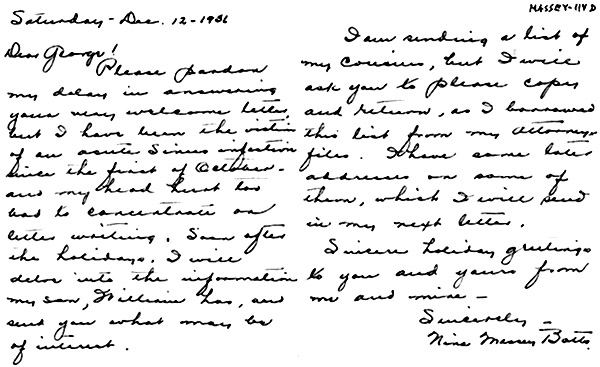 MASSEY-114 D
Saturday - Dec. 12 - 1936
Dear George!
Please pardon
my delay in answering
your very welcome letter,
but I have been the victim
of an acute Sinus infection
since the first of October -
and my head hurt too
bad to concentrate on
letter writing. Soon after
the holidays, I will
delve into the information
my son, William has, and
send you what may be
of interest.
I am sending a list of
my cousins, but I will
ask you to please copy
and return, as I borrowed
this list from my Attorneys
files. I have some later
addresses on some of
them, which I will send
in my next letter.
Sincere holiday greetings
to you and yours from
me and mine -
Sincerely -
Nina Massey Botts.